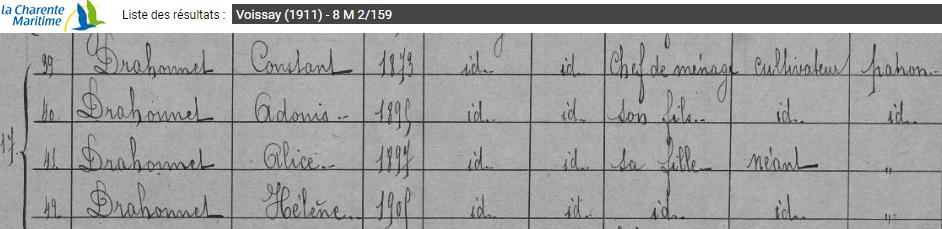 la Charente
Maritime
Liste des résultats : Voissay (1911) - 8 M 2/159
39 Drahonnet Constant 1873 id. id. Chef de ménage cultivateur patron
40 Drahonnet Adonis 1895 id. id. son fils id. id.
17 41 Drahonnet Alice 1897 id. id. sa fille néant "
42 Drahonnet Hélène 1905 id. id. id. id. "